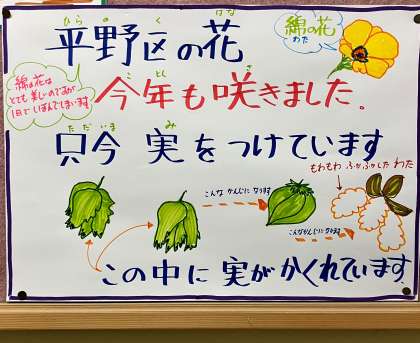 ひらのくはな
平野区の花
綿の花
わた
ことしさ
今年も咲きました。
綿の花は
とても美しいのであるが
1日でしぼんでしまいます
ただいまみ
只今 実をつけています
もわもわ ふかふかした わた
こんな かんじに なります
こんなかんじになります
この中に 実がかくれています